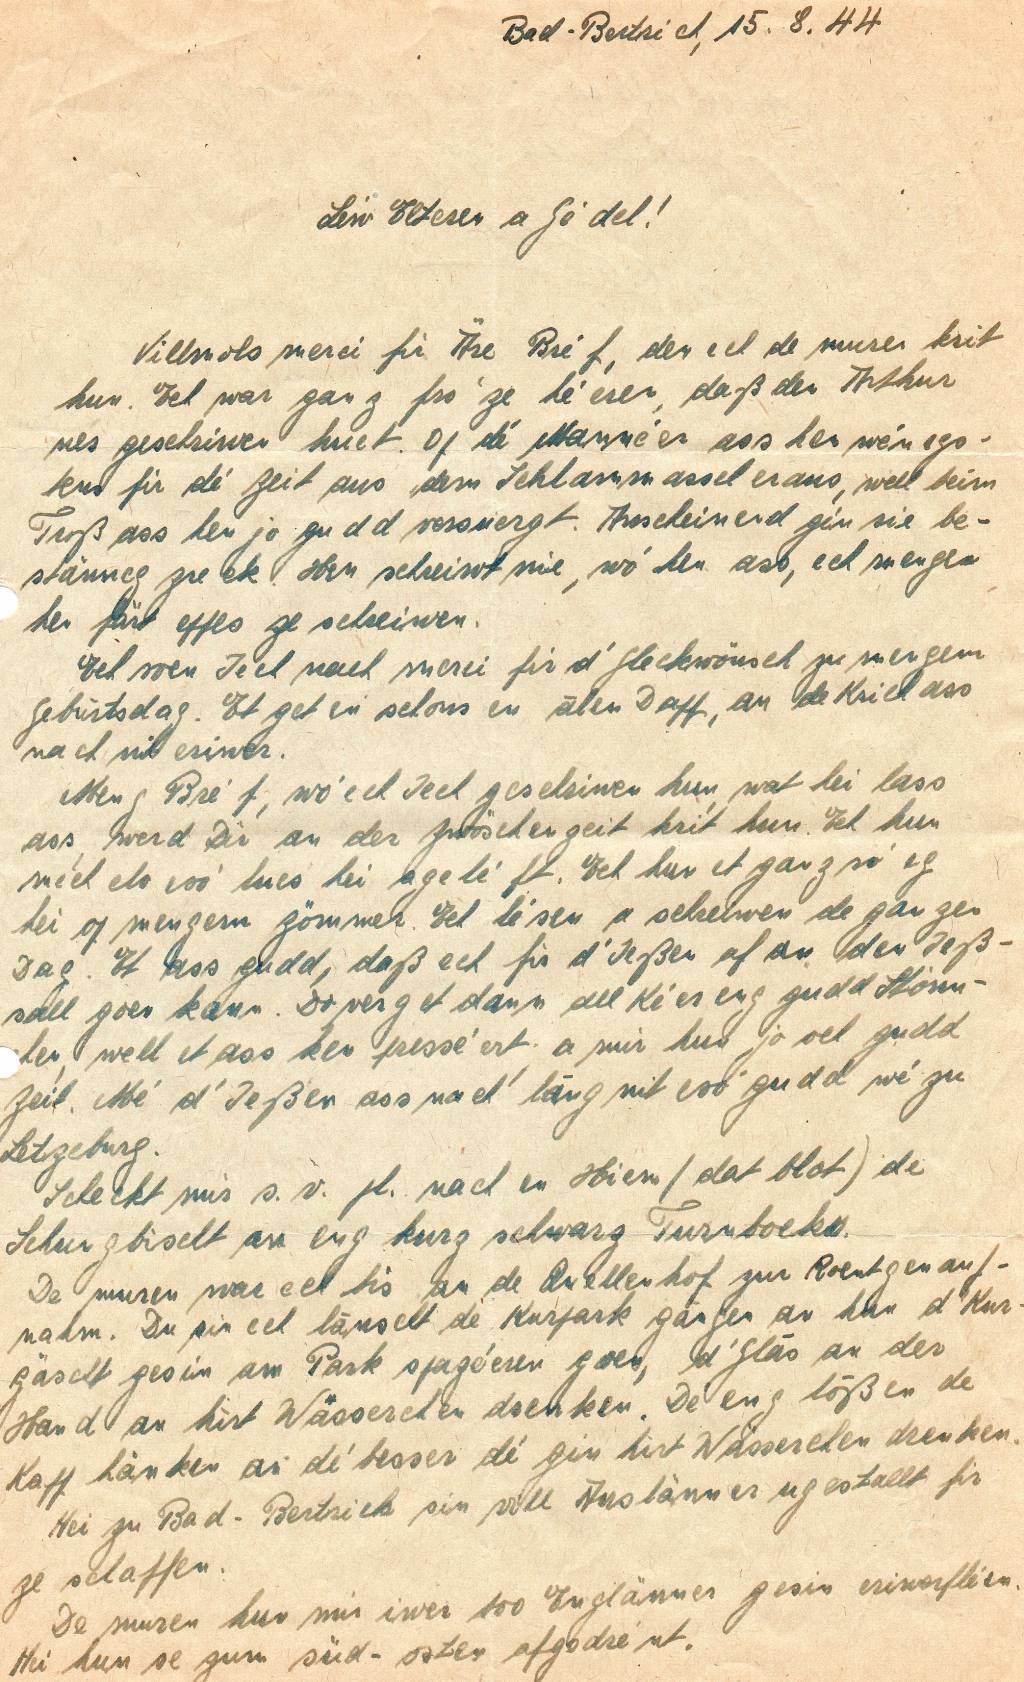 Bad-Bertrich, 15. 8. 44
Léiw Elteren a Jódel!
Villmols merci fir Äre Bréf, den ech de muren krit
hun. Ech war ganz fró ze héeren, daß den Arthur
nes geschriwen huet. Of dé Manéer ass hen wéinegs-
tens fir dé Zeit aus dem Schlammassel eraus, well beim
Troß ass hen jo gudd versuergt. Anscheinend gin sie be-
stänneg zreck. Hen schreiwt mir, wó hen ass, ech mengen
hen färt effes ze schreiwen.
Ech soen Iech nach merci fir d' Gleckwönsch zu mengem
Geburtsdag. Et get ein schons en alen Daff, an de Krich ass
nach nit eriwer.
Meng Bréf, wó ech Iech geschriwen hun, wat hei lass
ass, werd Dir an der Zwöschenzeit krit hun. Ech hun
mech elo esó lues hei ageléft. Ech hun et ganz róeg
hei op mengem Zömmer. Ech lésen a schreiwen de ganzen
Dag. Et ass gudd, daß ech fir d'Ießen af an den Ieß-
sall goen kann. Do verget dann all Kéer eng gudd Stonn-
hen, well et ass ken presséert a mir hun jo och gudd
Zeit. Mé d' Ießen ass nach láng nit esó gudd wé zu
Letzeburg.
Scheckt mir s. v. pl. nach en Hiem (dat blot) de
Schungbischt an eng kurz schwarz Turnbocks.
De muren war ech bis an de Quellenhof zur Roentgenauf-
nahm. Du sin ech länscht de Kurpark gángen an hun d'Kur-
gäscht gesin am Park spazéeren goen, d'Glas an der
Hand an hirt Wässerchen drenken. De eng lößen de
Kapp hänken an dé besser dé gin hirt Wässerchen drenken.
Hei zu Bad-Bertrich sin vill Auslänner ugestallt fir
ze schaffen.
De muren hun mir iwer 100 Englänner gesin eriwerfléen.
Hei hun se zum süd-osten ofgedrént.